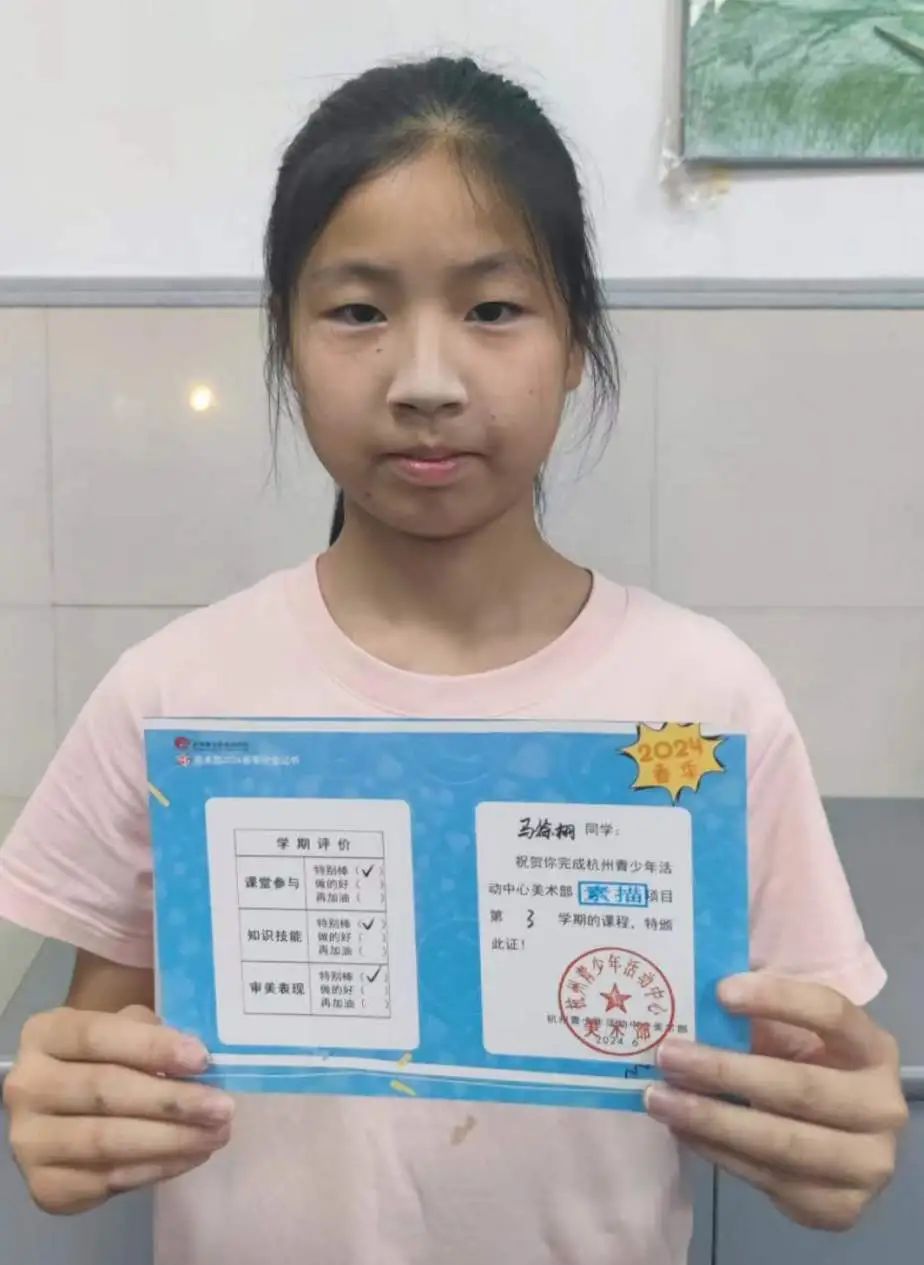 美术部2024春季学期证书
2024
春季
学期评价
课堂参与
特别棒(✓)
做的好( )
再加油( )
知识技能
特别棒(✓)
做的好( )
再加油( )
审美表现
特别棒(✓)
做的好( )
再加油( )
同学:
祝贺你完成杭州青少年活
动中心美术部 素描 项目
第 3 学期的课程,特颁
此证!
杭州青少年活动中心
美术部
杭州青少年活动中心美术部
2024.6